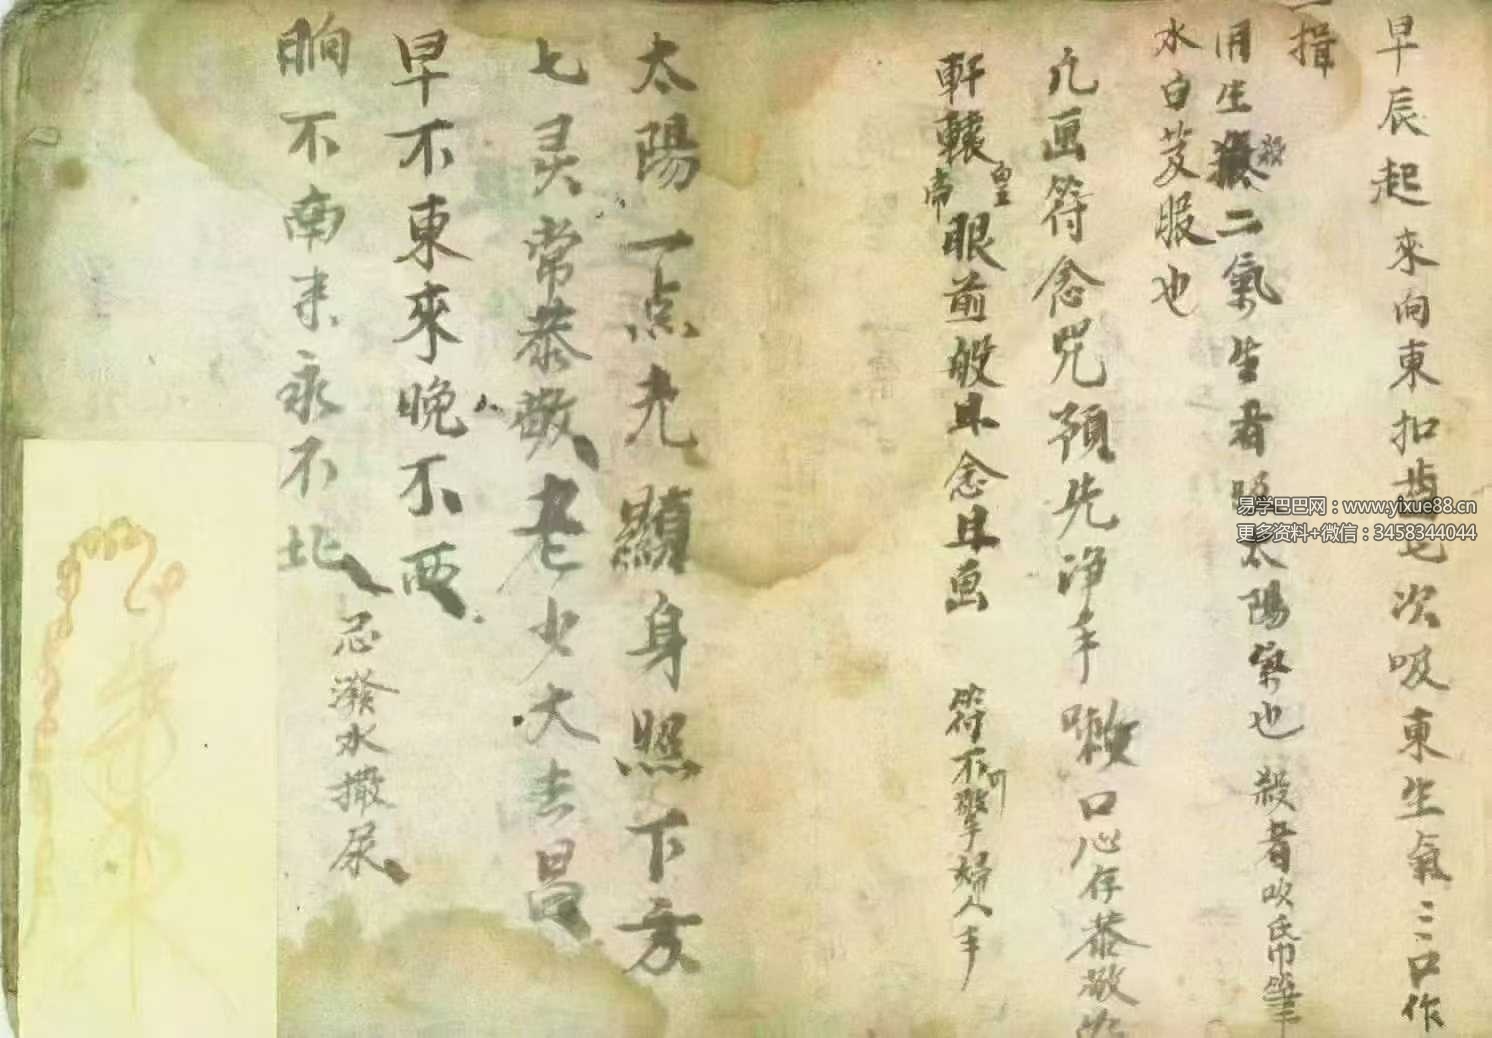 早辰起來向東扣齒七次吸東生氣三口作
一揖
用生殺二氣生者照太陽気也 殺者吹氏帋筆
殺
水白芨服也
凡画符念咒預先净手嗽口心存恭敬
軒轅皇帝眼前般且念且画 符不可擎婦人手
太陽一点光顯身照下方
七灵常恭敬老少大吉昌
早不東來晚不西
晌不南来永不北
忌潑水撒尿
易学巴巴网：www.yixue88.cn
更多资料+微信：3458344044